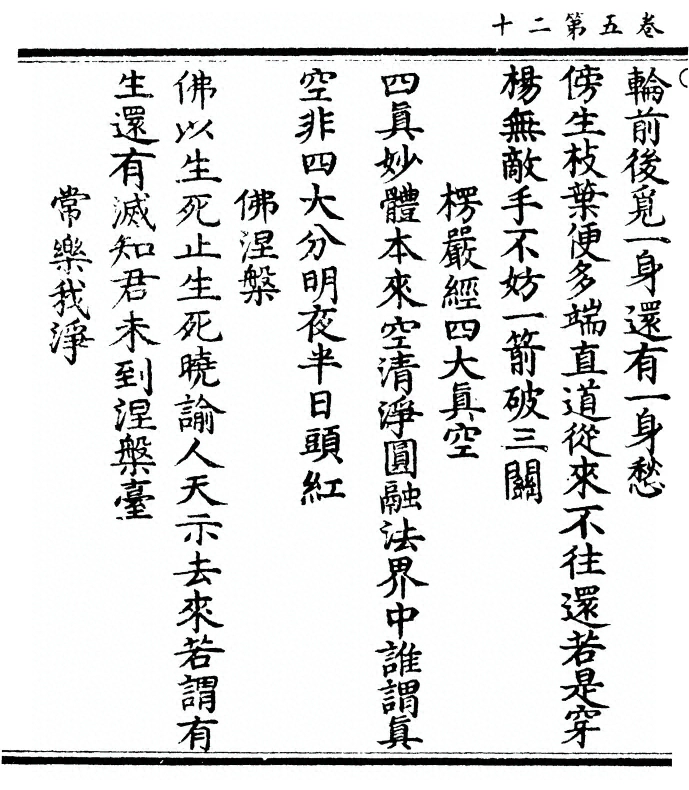 卷五第二十
輪前後覓一身還有一身愁
傍生枝葉便多端直道從來不往還若是穿
楊無敵手不妨一箭破三關
楞嚴經四大真空
四眞妙體本來空清淨圓融法界中誰謂眞
空非四大分明夜半日頭紅
佛涅槃
佛以生死止生死曉諭人天示去來若謂有
生還有滅知君未到涅槃臺
常樂我淨